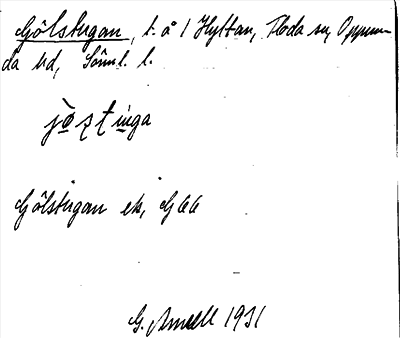 Gölstugan, t. å 1 Hyttan, Floda sn, Oppun-
da hd, Söml. l.
jöstinga
Gölstugan ek, G 66
G. Ameell 1931